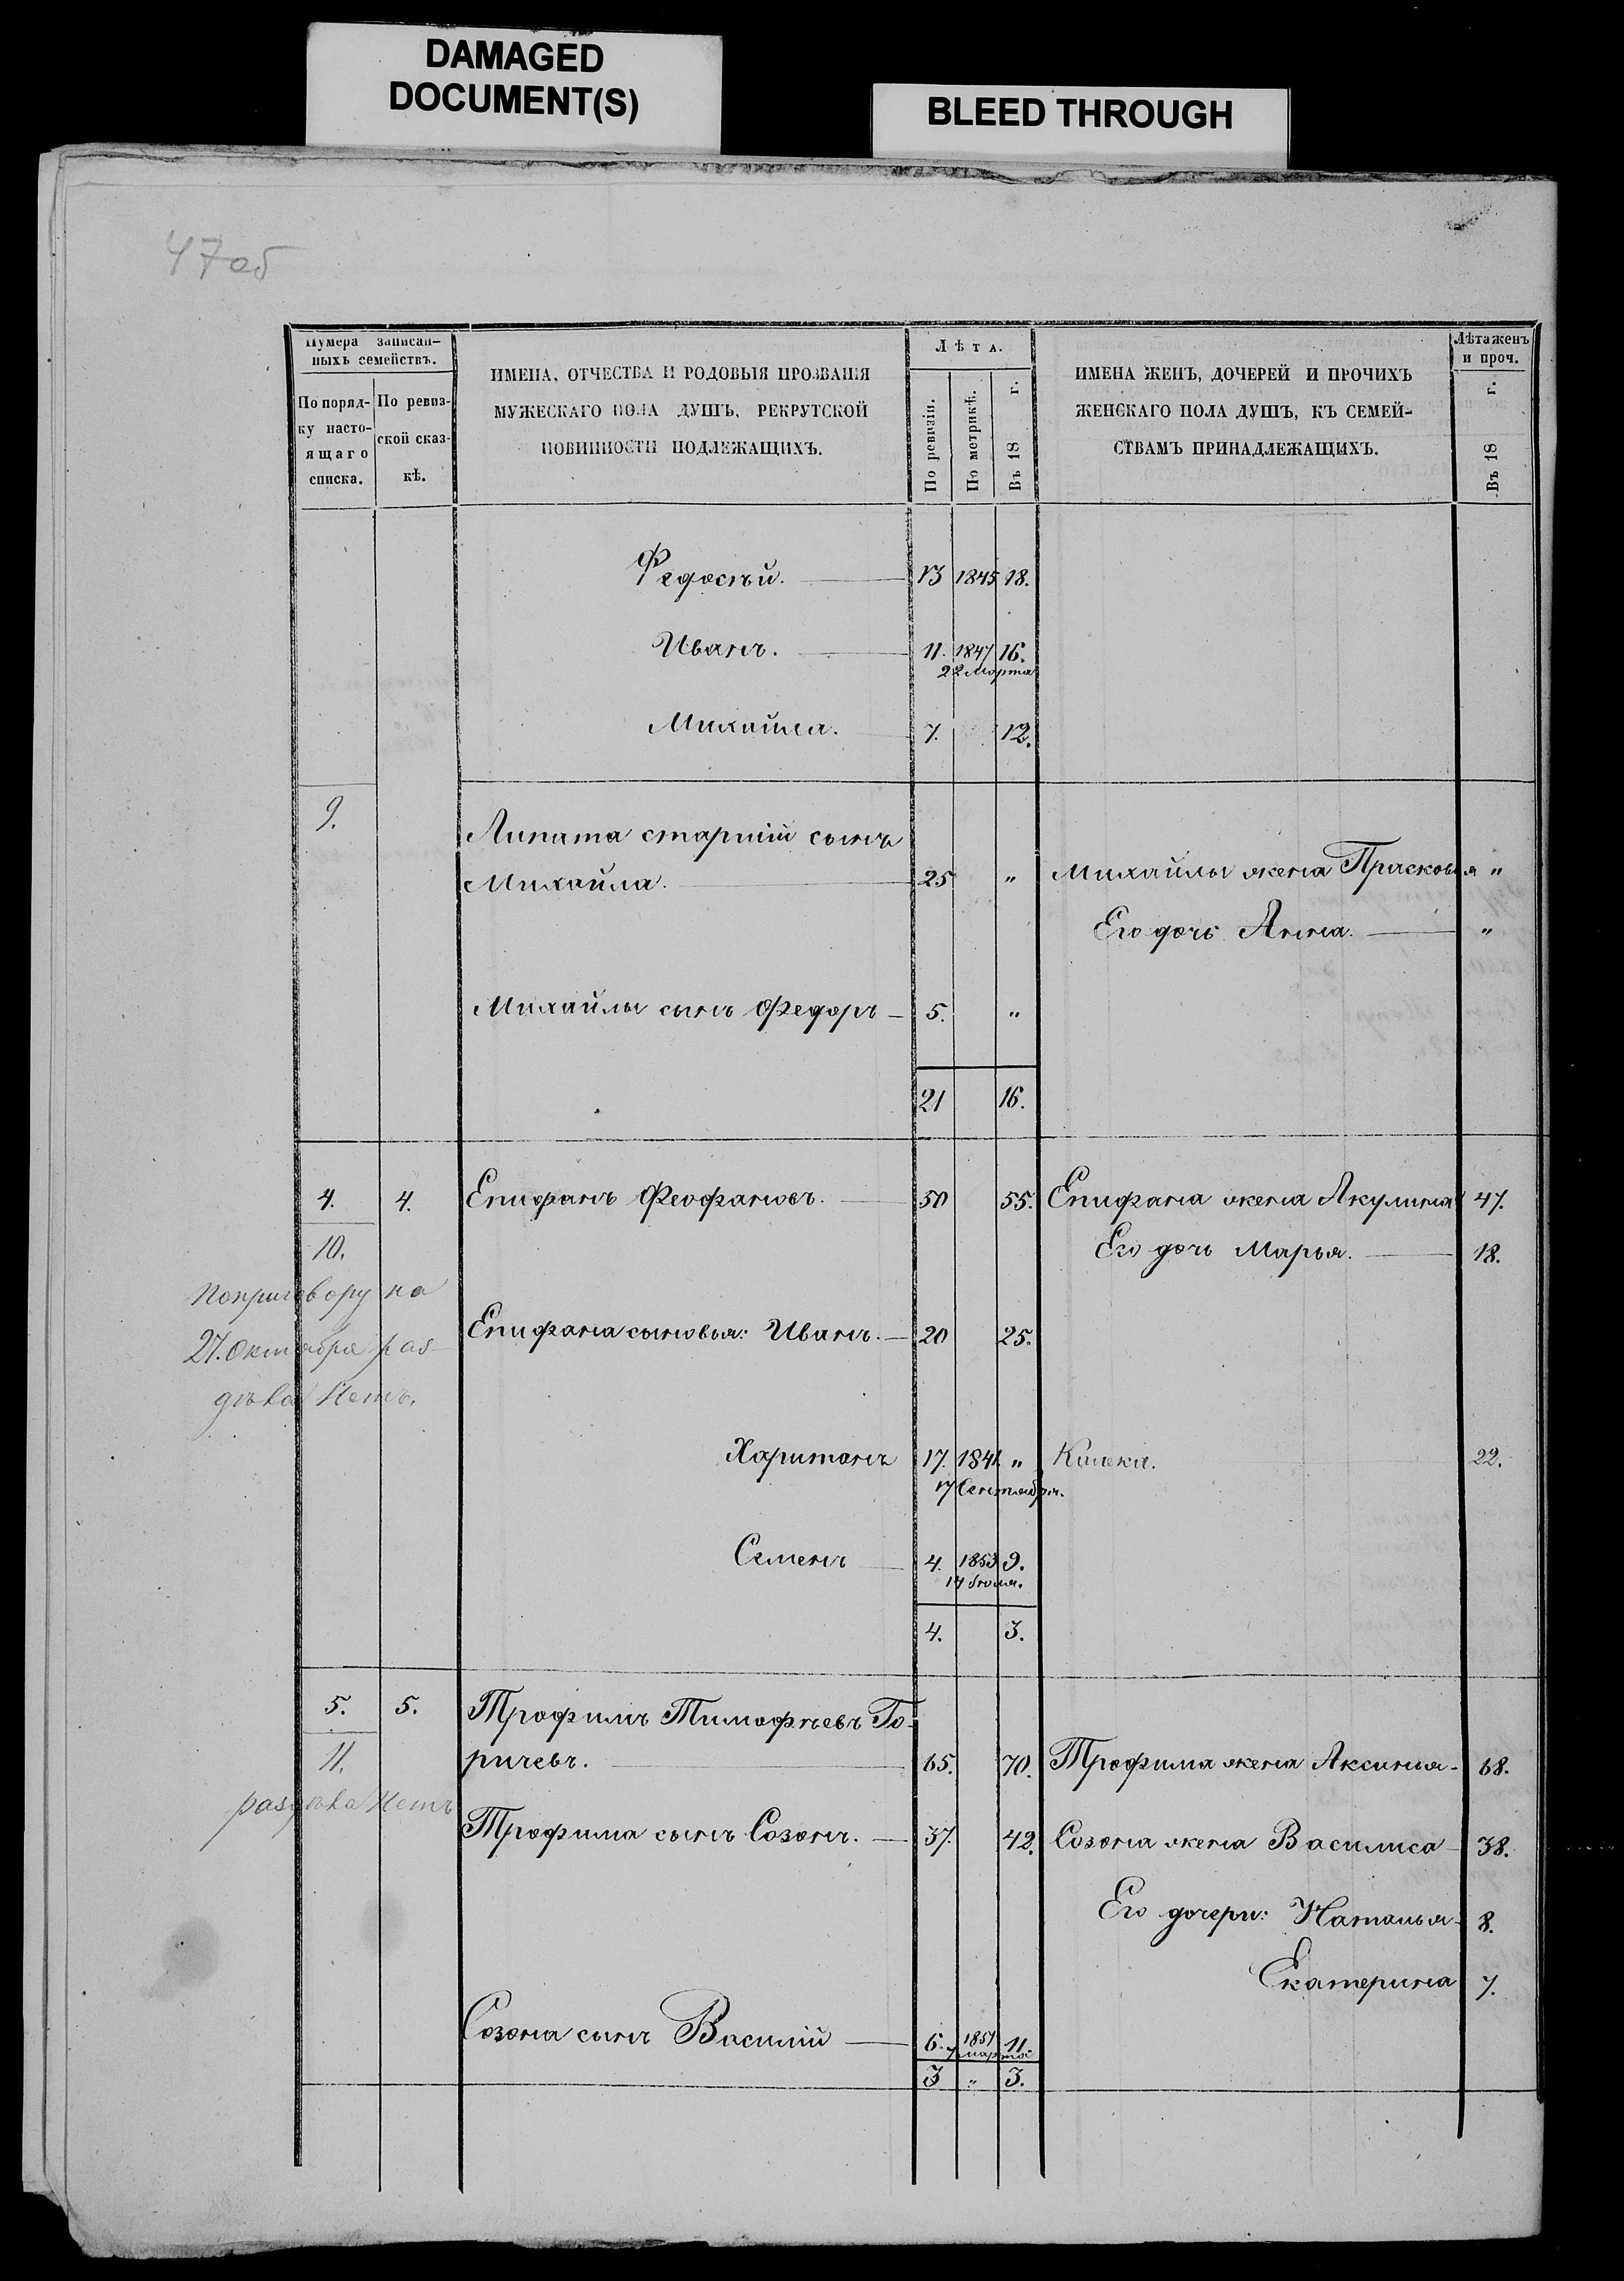 DAMAGED
DOCUMENT(S)
BLEED THROUGH
47об
Нумера записан-
ныхъ семействъ.
По поряд-
ку насто-
ящаго
списка.
По ревиз-
ской сказ-
кѣ.
ИМЕНА, ОТЧЕСТВА И РОДОВЫЯ ПРОЗВАНІЯ
МУЖЕСКАГО ПОЛА ДУШЪ, РЕКРУТСКОЙ
ПОВИННОСТИ ПОДЛЕЖАЩИХЪ.
Лѣта.
По ревизіи.
По метрикѣ.
Въ 18 г.
ИМЕНА ЖЕНЪ, ДОЧЕРЕЙ И ПРОЧИХЪ
ЖЕНСКАГО ПОЛА ДУШЪ, КЪ СЕМЕЙ-
СТВАМЪ ПРИНАДЛЕЖАЩИХЪ.
Лѣта женъ
и проч.
Въ 18 г.
Федосѣй. 13 1845 18.
Иванъ. 11. 1847 16.
22 Марта
Михайла. 7. 12.
9.
Липата старшій сынъ
Михайла. 25 „ Михайлы жена Прасковья „
Его дочь Анна. „
Михайлы сынъ Федоръ 5. „
21 16.
4. 4. Епифанъ Феофановъ. 50 55. Епифана жена Акулина 47.
10. Его дочь Марья. 18.
По приговору на
27. Октября раз-
дѣла Нетъ.
Епифана сыновья: Иванъ. 20 25.
Харитонъ 17. 1841 „ 22.
17 Сентября.
Семенъ 4. 1853 9.
14 Іюля.
4. 3.
5. 5. Трофимъ Тимофѣевъ Го-
11. ричевъ. 65. 70. Трофима жена Аксинья 68.
раздѣла Нетъ
Трофима сынъ Созонъ. 37. 42. Созона жена Василиса 38.
Его дочери: Наталья 8.
Екатерина 7.
Созона сынъ Василій 6. 1851 11.
7 марта
3 „ 3.